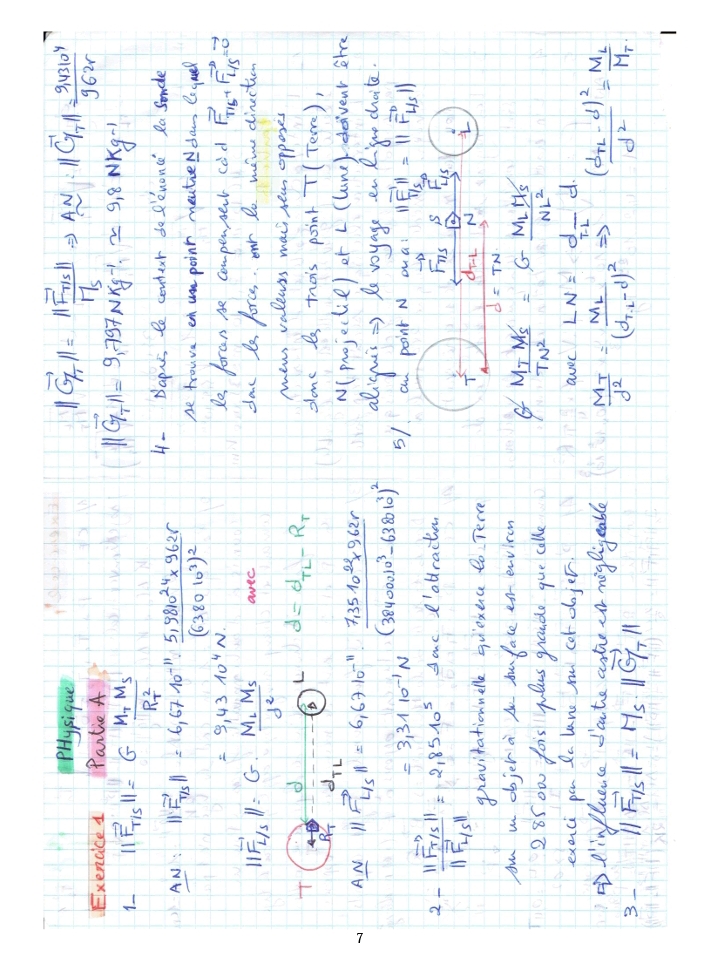 PHysique
Exercice 1 Partie A
1_ ||F⃗T/S|| = G MT MS / RT²
AN: ||F⃗T/S|| = 6,67 10⁻¹¹ · 5,98 10²⁴ × 9625 / (6380 10³)²
= 9,43 10⁴ N.
||F⃗L/S|| = G. ML MS / d² avec
T d L d = dTL - RT
RT dTL
AN ||F⃗L/S|| = 6,67 10⁻¹¹ · 7,35 10²² × 9625 / (384000 10³ - 6380 10³)²
= 3,31 10⁻¹ N
2- ||F⃗T/S|| / ||F⃗L/S|| = 2,85 10⁵ donc l'attraction
gravitationnelle qu'exerce la Terre
sur un objet à sa surface est environ
285 000 fois plus grande que celle
exercé par la lune sur cet objet.
⇒ l'influence d'autre astre est négligeable
3- ||F⃗T/S|| = MS ||G⃗T||
||G⃗T|| = ||F⃗T/S|| / MS ⇒ AN: ||G⃗T|| = 9,43 10⁴ / 9625
||G⃗T|| = 9,797 N Kg⁻¹ ≃ 9,8 N Kg⁻¹
4- D'après le context de l'énoncé la sonde
se trouve en un point neutre N dans lequel
les forces se compensent càd F⃗T/S + F⃗L/S = 0⃗
donc les forces ont la même direction
même valeurs mais sens opposés
donc les trois point T (Terre),
N (projectil) et L (lune) doivent être
alignés ⇒ le voyage en ligne droite.
5/. au point N on a: ||F⃗T/S|| = ||F⃗L/S||
T F⃗T/S S F⃗L/S L
N
dT-L
d = TN
G MT MS / TN² = G ML MS / NL²
avec LN = dT-L - d.
MT / d² = ML / (dT-L - d)² ⇒ (dTL - d)² / d² = ML / MT.
7